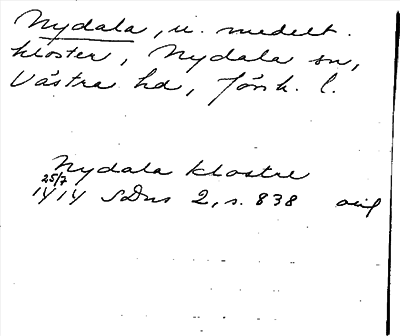 Nydala, u. medelt.
kloster, Nydala sn,
Västra hd, Jönk. l.
Nydala klostre
25/7
1414 SDns 2, s. 838 avl